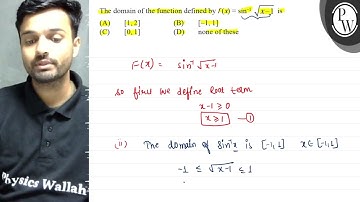 The domain of the function defined by f(x) = sin⁻¹ √(x−1) is
(A) [1, 2] (B) [−1, 1]
(C) [0, 1] (D) none of these
PW
F(x) = sin⁻¹ √x-1
so first we define root term
x-1 ≥ 0
x ≥ 1 — ①
(ii) The domain of sin⁻¹x is [-1,1] x∈[-1,1]
-1 ≤ √x-1 ≤ 1
Physics Wallah